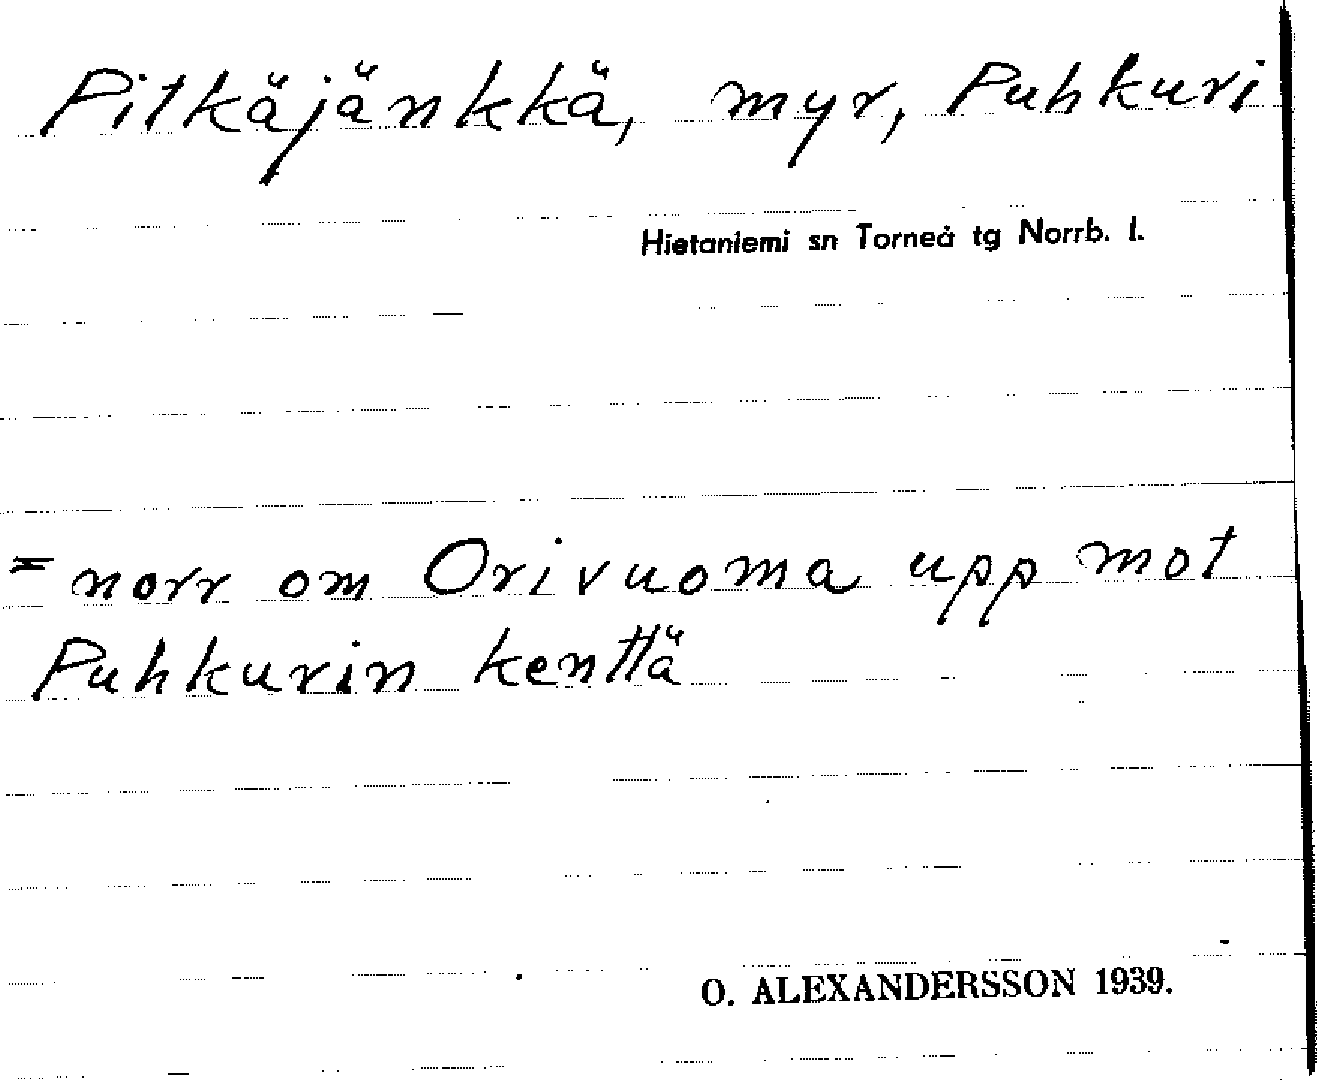 Pitkäjänkkä, myr, Puhkuri
Hietaniemi sn Torneå tg Norrb. l.
= norr om Orivuoma upp mot
Puhkurin kenttä
O. ALEXANDERSSON 1939.